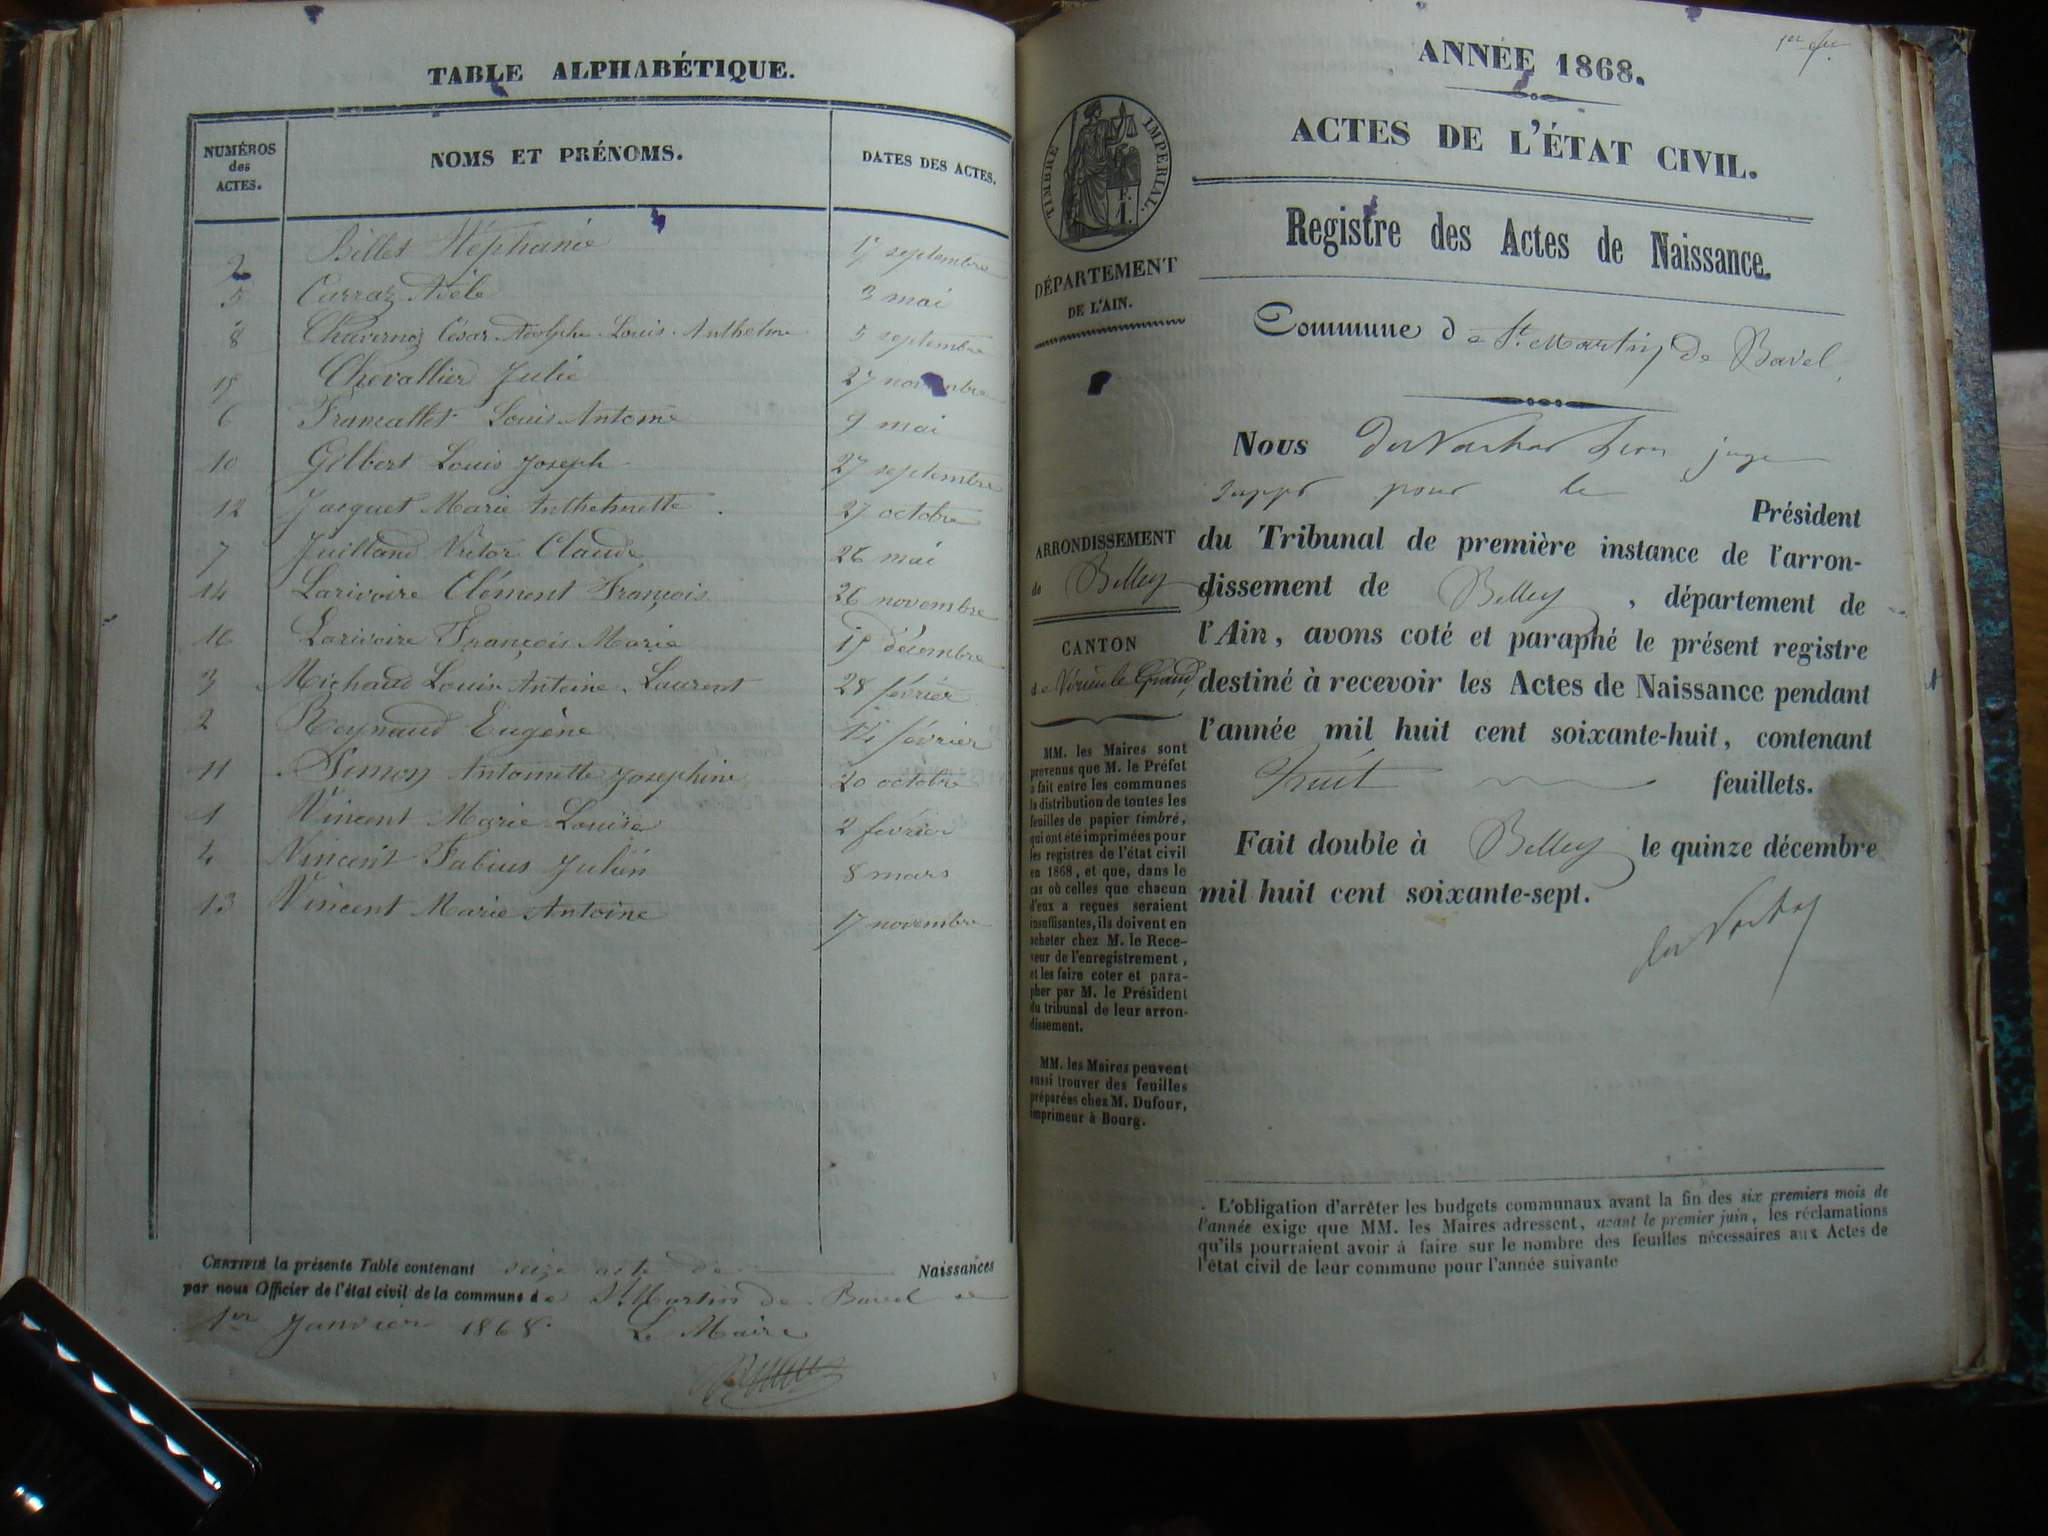 TABLE ALPHABÉTIQUE.
NUMÉROS des ACTES. NOMS ET PRÉNOMS. DATES DES ACTES.
Billet Stéphanie 17 septembre
5 Carraz Adèle 3 mai
8 Chavernoz César Adolphe Louis Anthelme 5 septembre
15 Chevallier Julie 27 novembre
6 Francallet Louis Antoine 9 mai
10 Gilbert Louis Joseph 27 septembre
12 Jacquet Marie Anthelmette 27 octobre
7 Juilland Victor Claude 26 mai
14 Larivoire Clément François 26 novembre
16 Larivoire François Marie 15 décembre
3 Michaud Louis Antoine Laurent 28 février
2 Reynaud Eugène février
11 Simon Antoinette Joséphine 20 octobre
1 Vincent Marie Louise 2 février
4 Vincent Fabius Julien 8 mars
13 Vincent Marie Antoine 17 novembre
CERTIFIÉ la présente Table contenant seize acte de Naissances
par nous Officier de l'état civil de la commune de St Martin de Bavel le
1er Janvier 1868. Le Maire
ANNÉE 1868.
ACTES DE L'ÉTAT CIVIL.
TIMBRE IMPERIAL.
F.
1.
Registre des Actes de Naissance.
DÉPARTEMENT
DE L'AIN.
Commune de St. Martin de Bavel
Nous Léon juge
supp. pour le Président
du Tribunal de première instance de l'arron-
dissement de Belley, département de
l'Ain, avons coté et paraphé le présent registre
destiné à recevoir les Actes de Naissance pendant
l'année mil huit cent soixante-huit, contenant
huit feuillets.
Fait double à Belley le quinze décembre
mil huit cent soixante-sept.
ARRONDISSEMENT
de Belley
CANTON
de Virieu le Grand
MM. les Maires sont
prévenus que M. le Préfet
a fait entre les communes
la distribution de toutes les
feuilles de papier timbré,
qui ont été imprimées pour
les registres de l'état civil
en 1868, et que, dans le
cas où celles que chacun
d'eux a reçues seraient
insuffisantes, ils doivent en
acheter chez M. le Rece-
veur de l'enregistrement,
et les faire coter et para-
pher par M. le Président
du tribunal de leur arron-
dissement.
MM. les Maires peuvent
aussi trouver des feuilles
préparées chez M. Dufour,
imprimeur à Bourg.
L'obligation d'arrêter les budgets communaux avant la fin des six premiers mois de
l'année exige que MM. les Maires adressent, avant le premier juin, les réclamations
qu'ils pourraient avoir à faire sur le nombre des feuilles nécessaires aux Actes de
l'état civil de leur commune pour l'année suivante